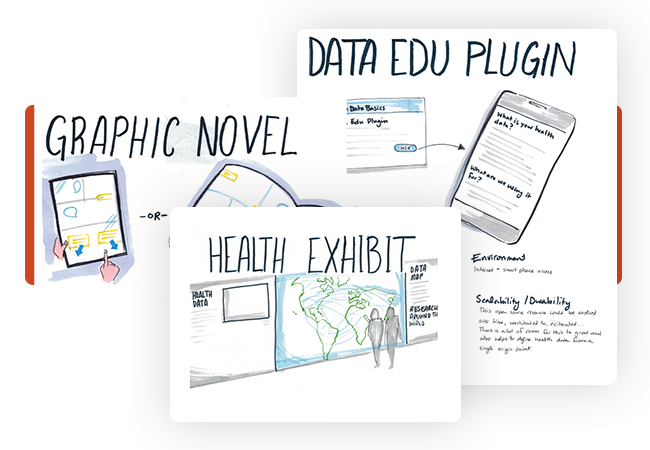 DATA EDU PLUGIN
Data Basics
Edu Plugin
USE
What is your health
data?
What are we using it
for?
Environment
Internet + smart phone access
Scalability / Durability
This open source resource could be evolved
over time, contributed to, reiterated...
There is a lot of room for this to grow and
also helps to define health data from a
single origin point.
GRAPHIC NOVEL
-OR-
HEALTH EXHIBIT
HEALTH
DATA
DATA
MAP
RESEARCH
AROUND THE
WORLD